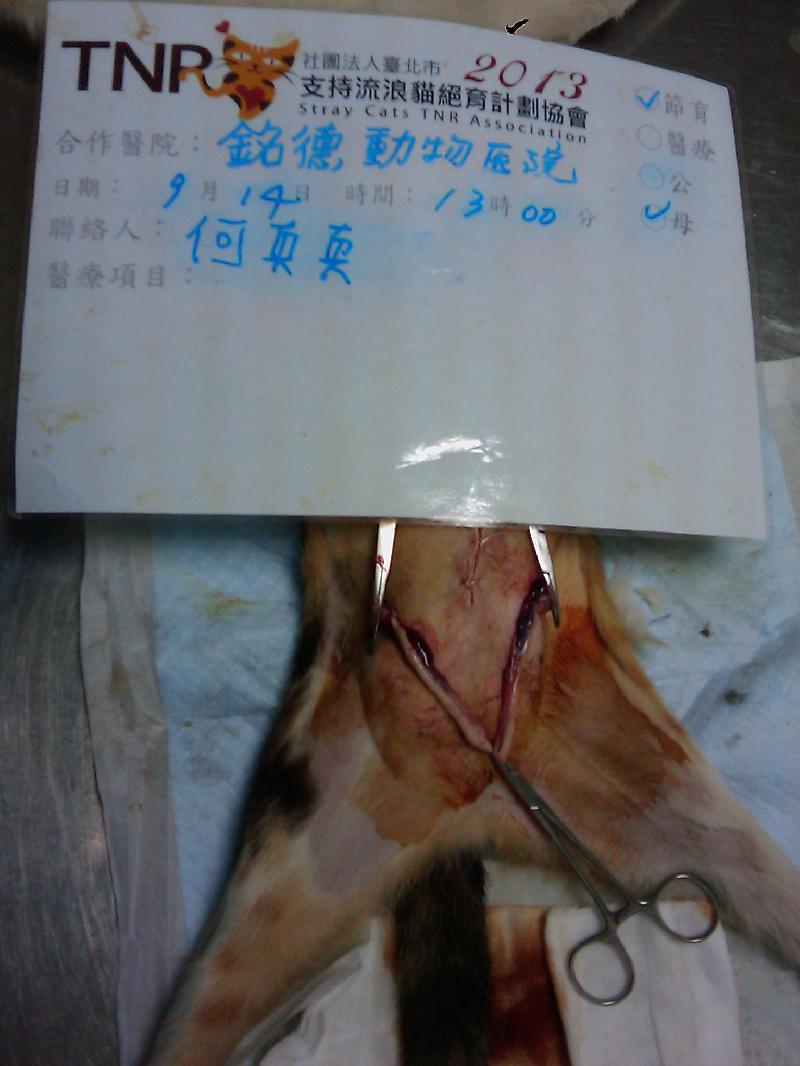 TNR 社團法人臺北市 2013
支持流浪貓絕育計劃協會
Stray Cats TNR Association
節育
醫療
公
母
合作醫院：銘德動物医院
日期：9月14日 時間：13時00分
聯絡人：何真真
醫療項目：